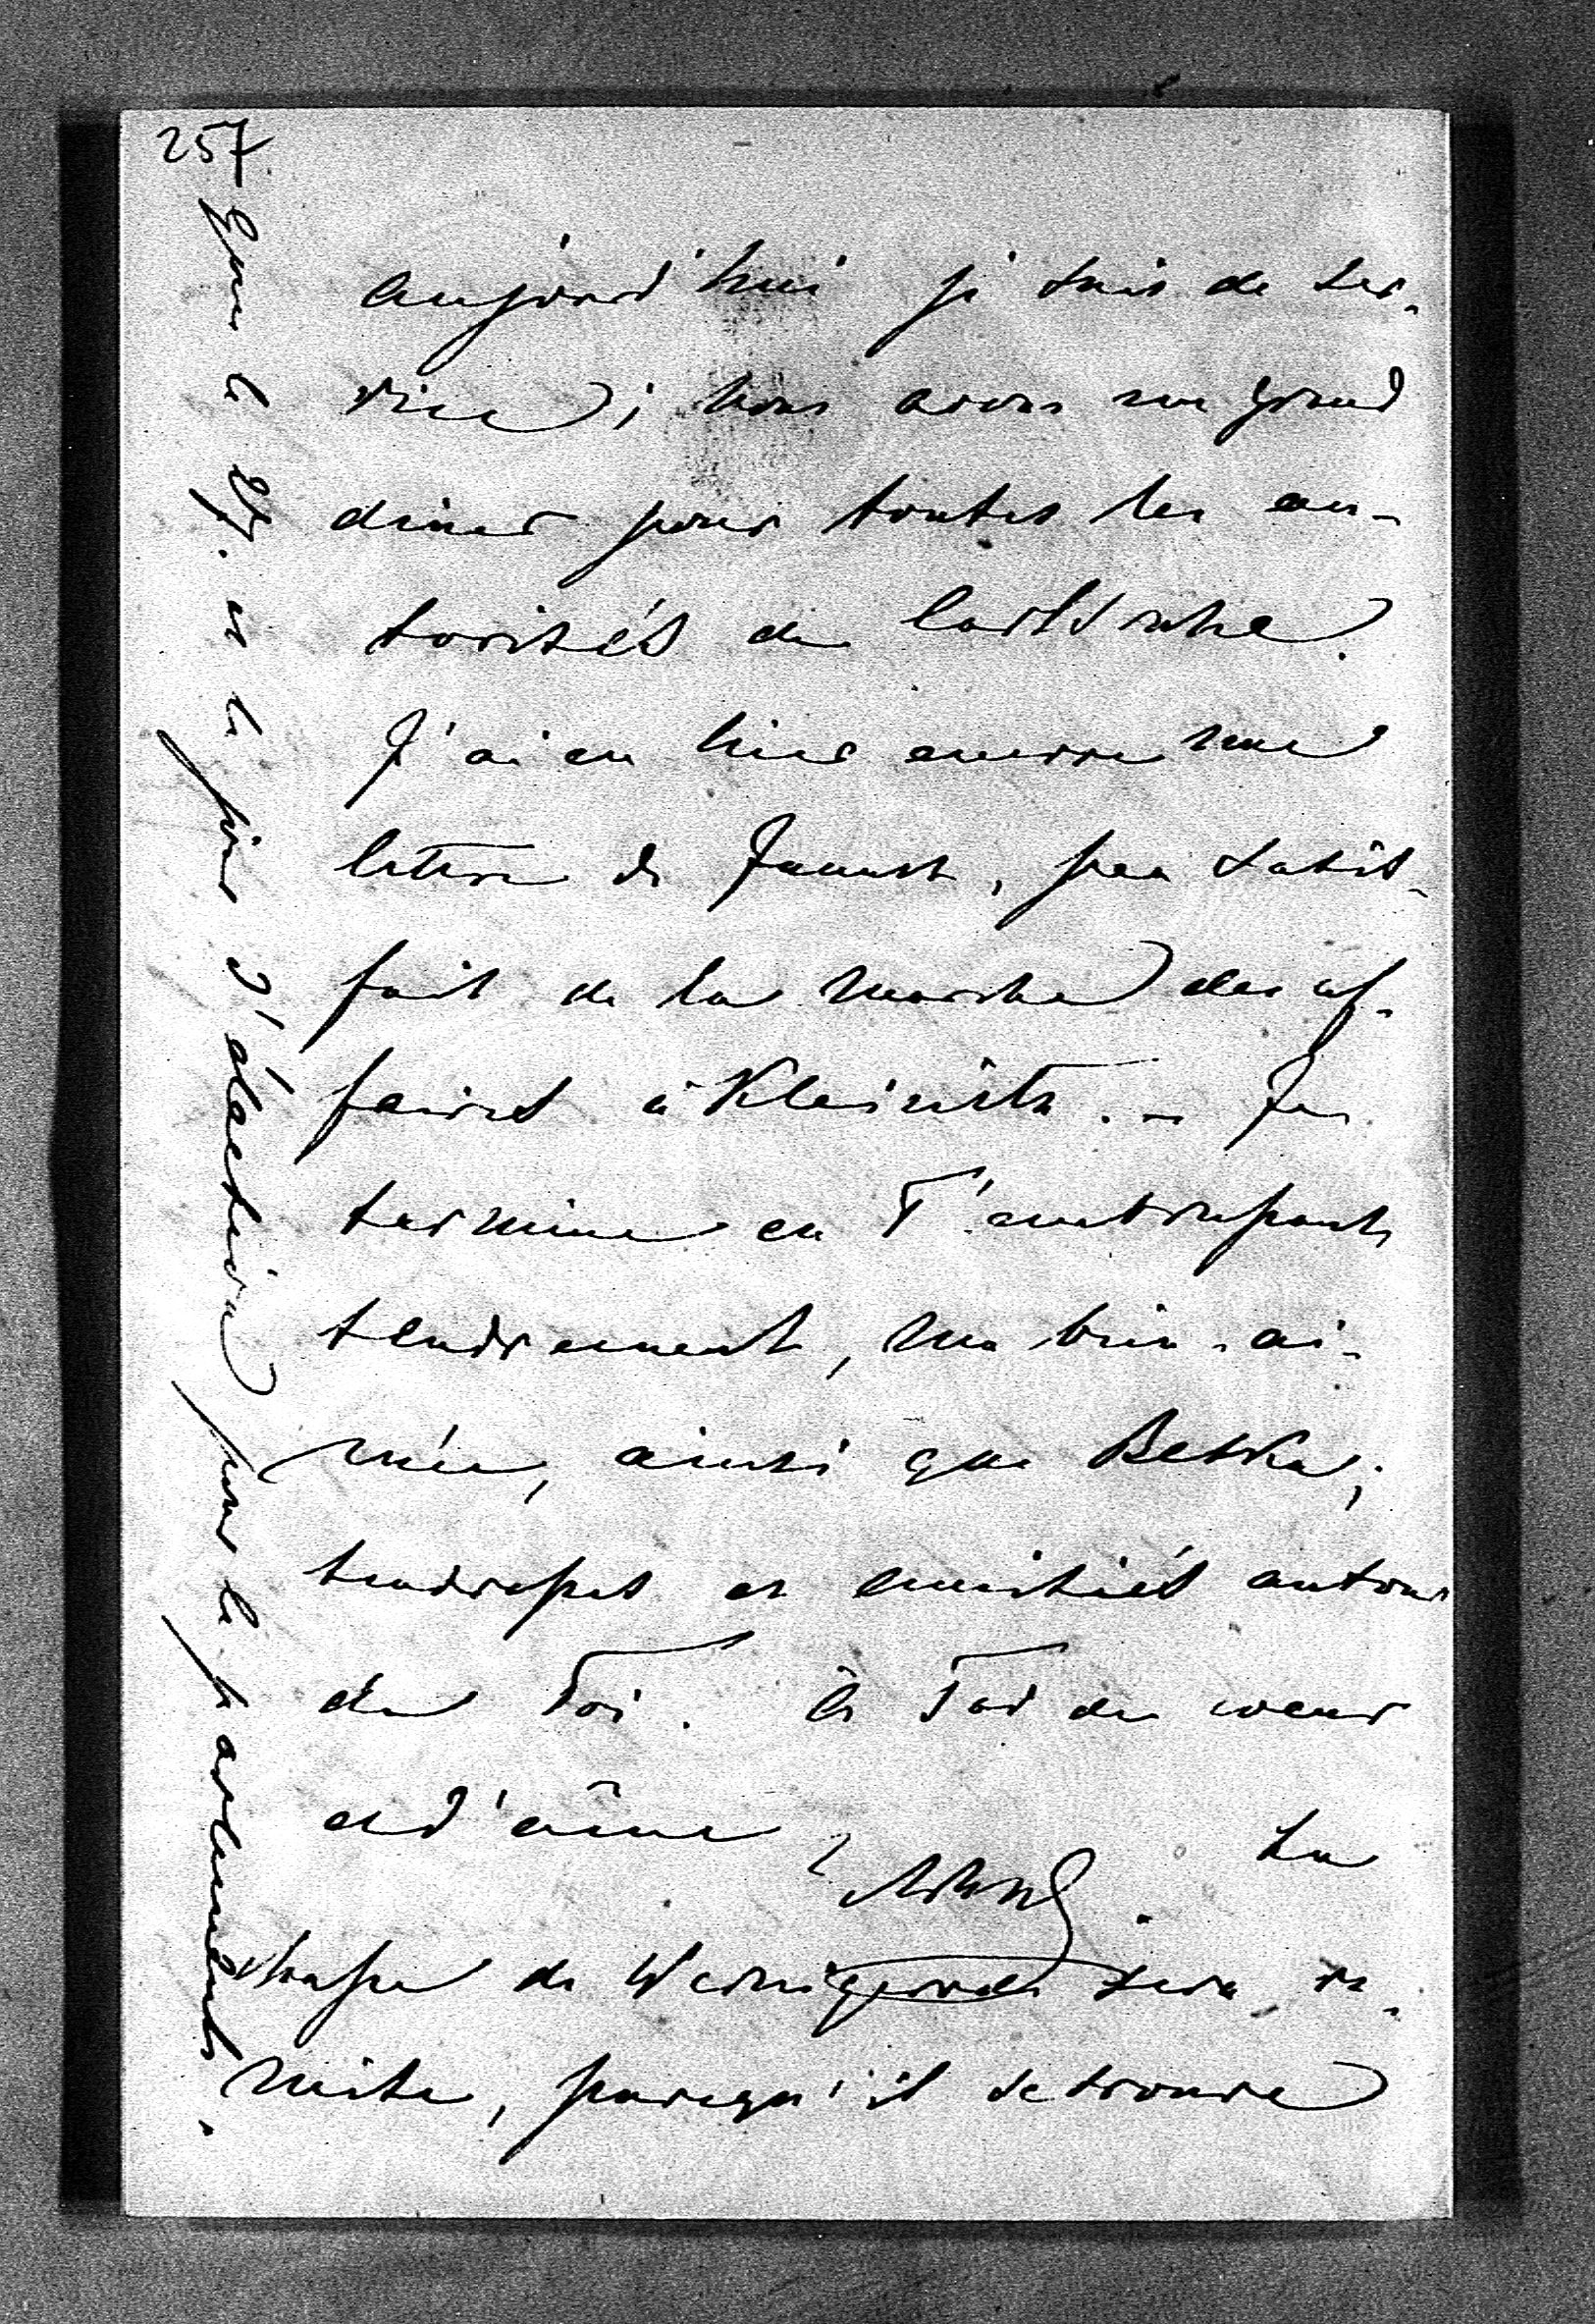 257
aujourd'hui je suis de ser-
vice; nous avons un grand
diner pour toutes les au-
torités de Carlsruhe.
J'ai eu hier encore une
lettre de , peu satis-
fait de la marche des af-
faires à . – Je
termine en T'embrassant
tendrement, ma bien-ai-
mée, ainsi que Betka;
tendresses et amitiés autour
de Toi. à Toi de coeur
et d'âme
. La
chasse de Wernigerode sera re-
mise, parcequ'il se trouve
que le 27. est le jour d'élection pour le parlement.